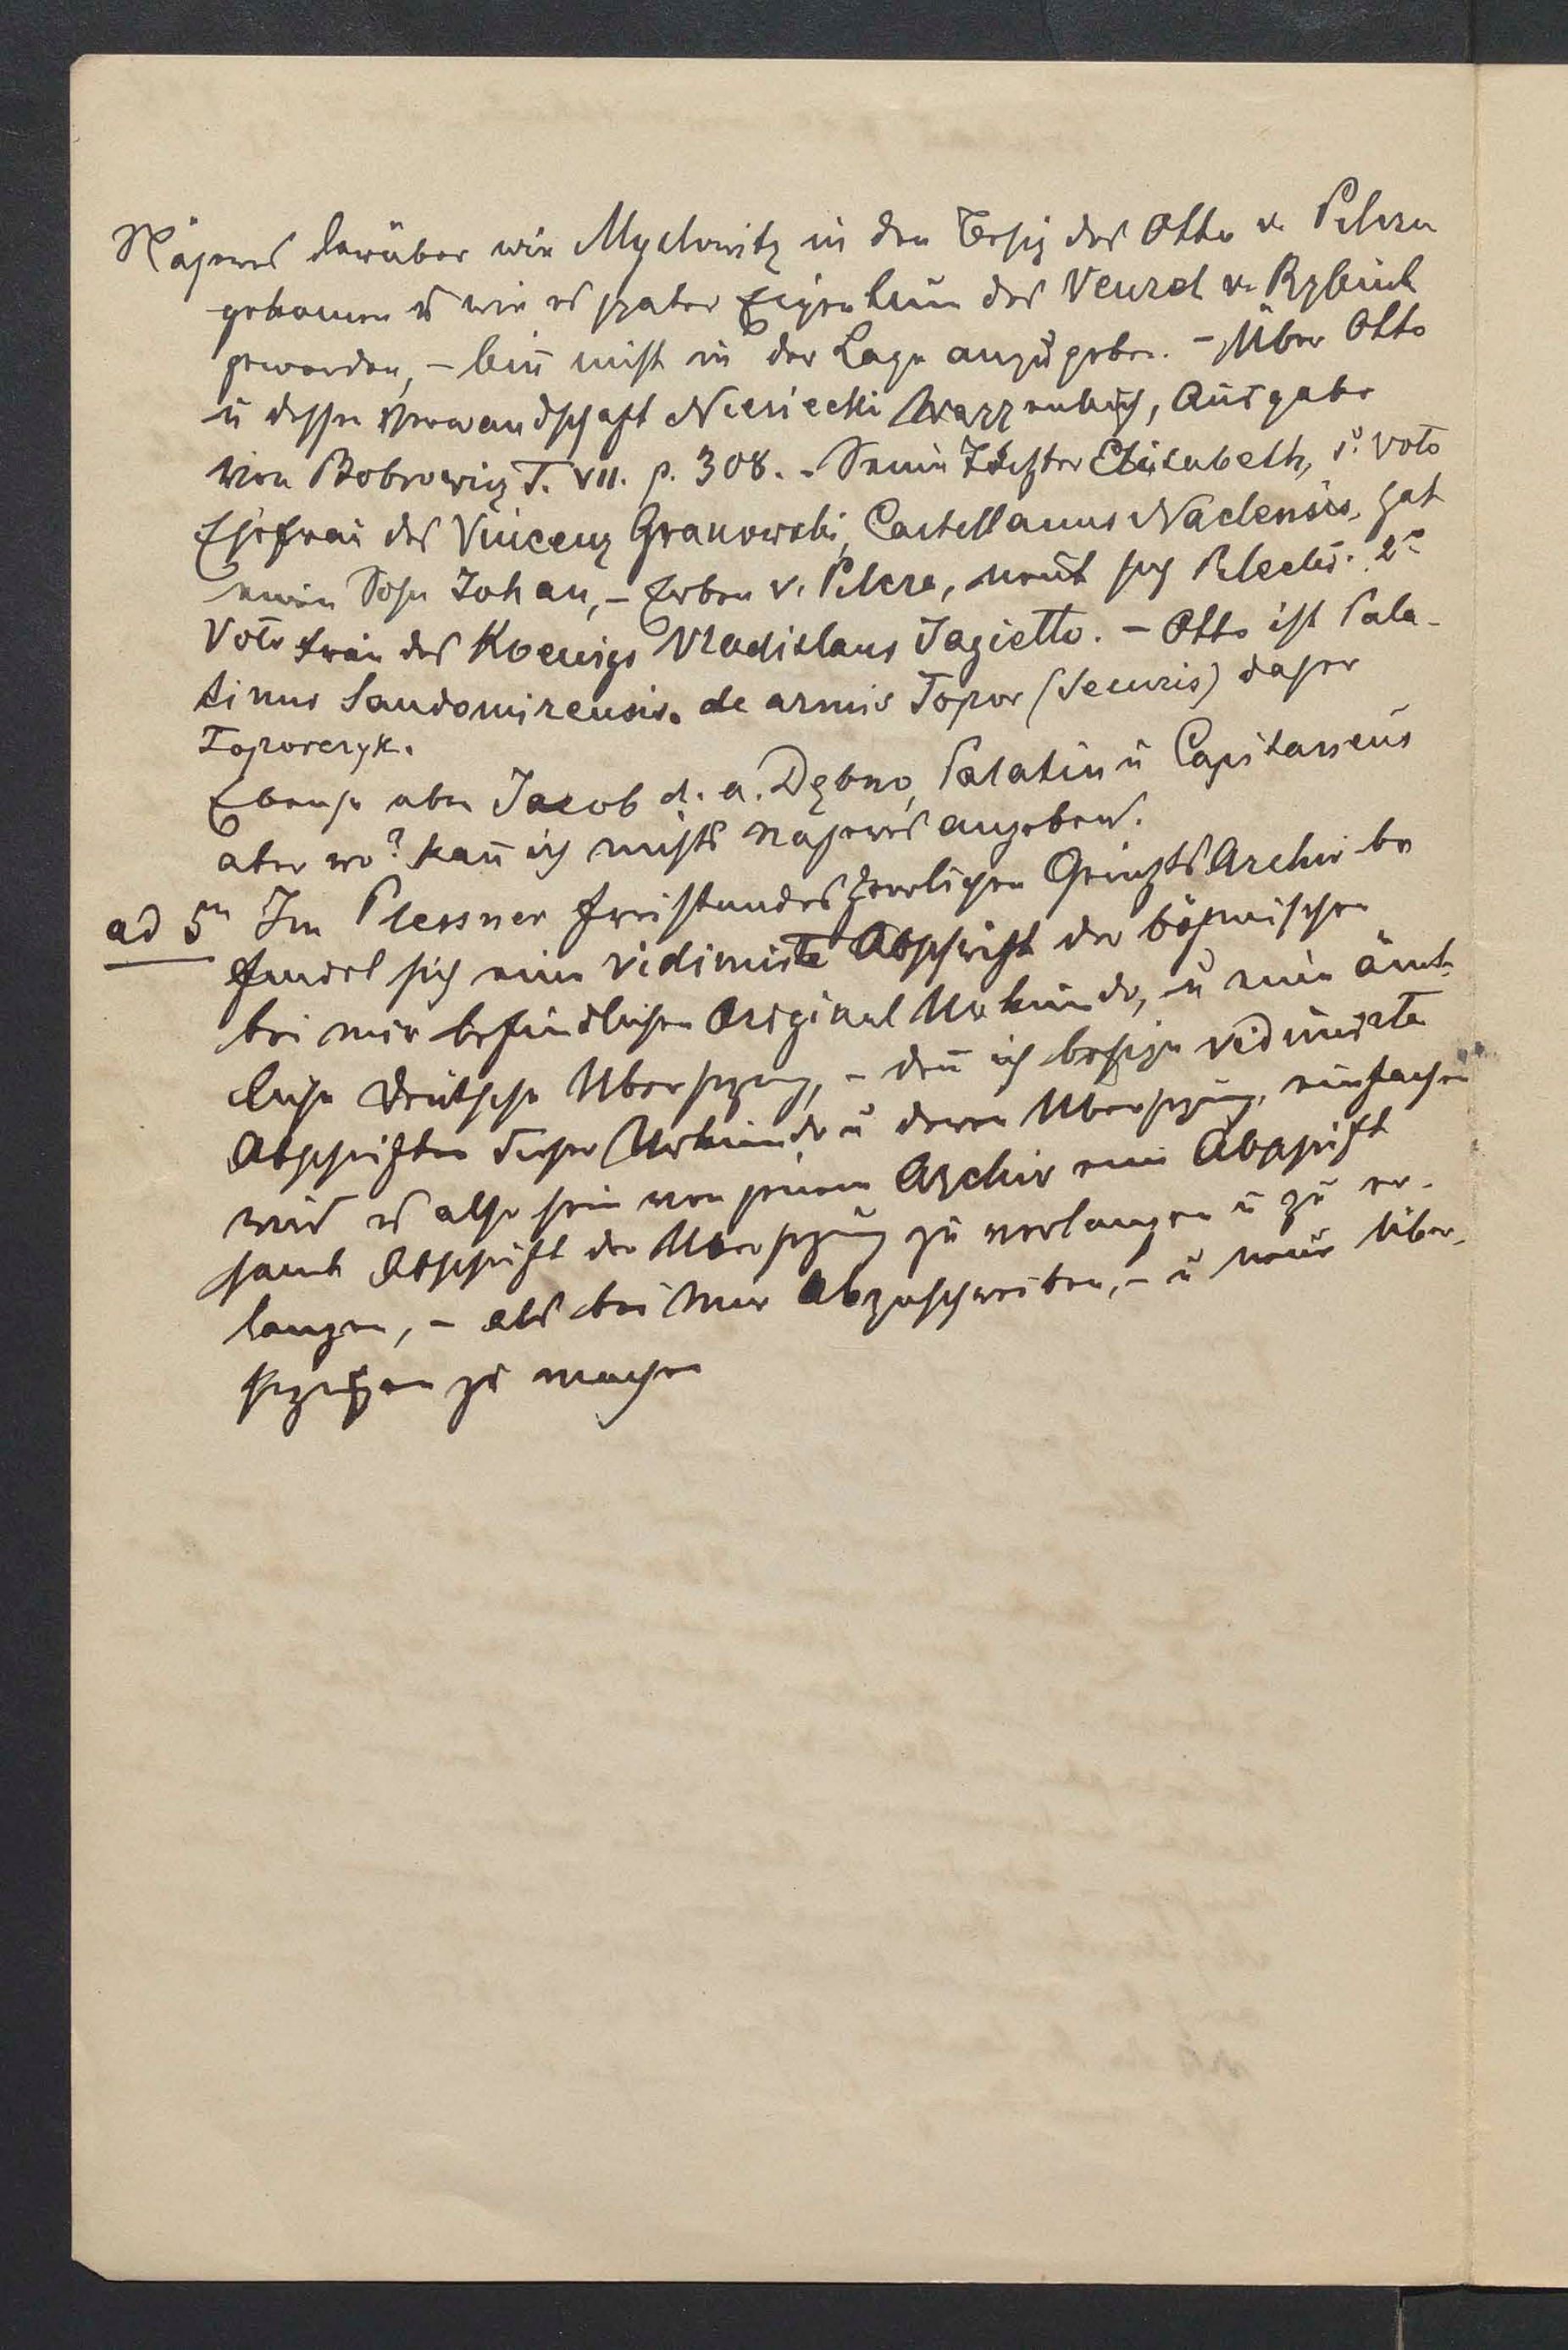 Näheres darüber wie Myslowitz in den Besiz des Otto v. Pilcza
gekomen u wie es spater Eigenthum des Venzel v. Rybnik
geworden, – bin̄ nicht in der Lage anzugeben. – Über Otto
u dessen Verwandschaft Niesiecki Wappenbuch, Ausgabe
von Bobrowicz T. VII. p. 308. – Seine Tochter Elisabeth, 1º voto
Ehefrau des Vincenz Granowski, Castellanus Naclensis, hat
einen Sohn Johan, – Erben v. Pilcza, nent sich Pilecki. 2º
Voto Frau des Koenigs Vladislaus Jagiello. – Otto ist Pala-
tinus Sandomirensis. de armis Topor (Securis) daher
Toporczyk.
Ebenso uber Jacob d. a. Dębno, Palatin u Capitaneus
aber wo? kan̄ ich nichts näheres angeben.
ad 5n Im Plessner freistandesherrlichen Gerichts Archiv be
findet sich eine vidimirte Abschrift der böhmischen
bei mir befindlichen Original Urkunde, u eine ämt-
liche deutsche Ubersezung, – den̄ ich besize vidimirte
Abschriften dieser Urkunde u deren Ubersezung, einfacher
wird es also sein von jenem Archiv eine Abschrift
samt Abschrift der Ubersezung zu verlangen u zu er-
langen, – als bei mir abzuschreiben, – u neue Über-
sezungen zu machen